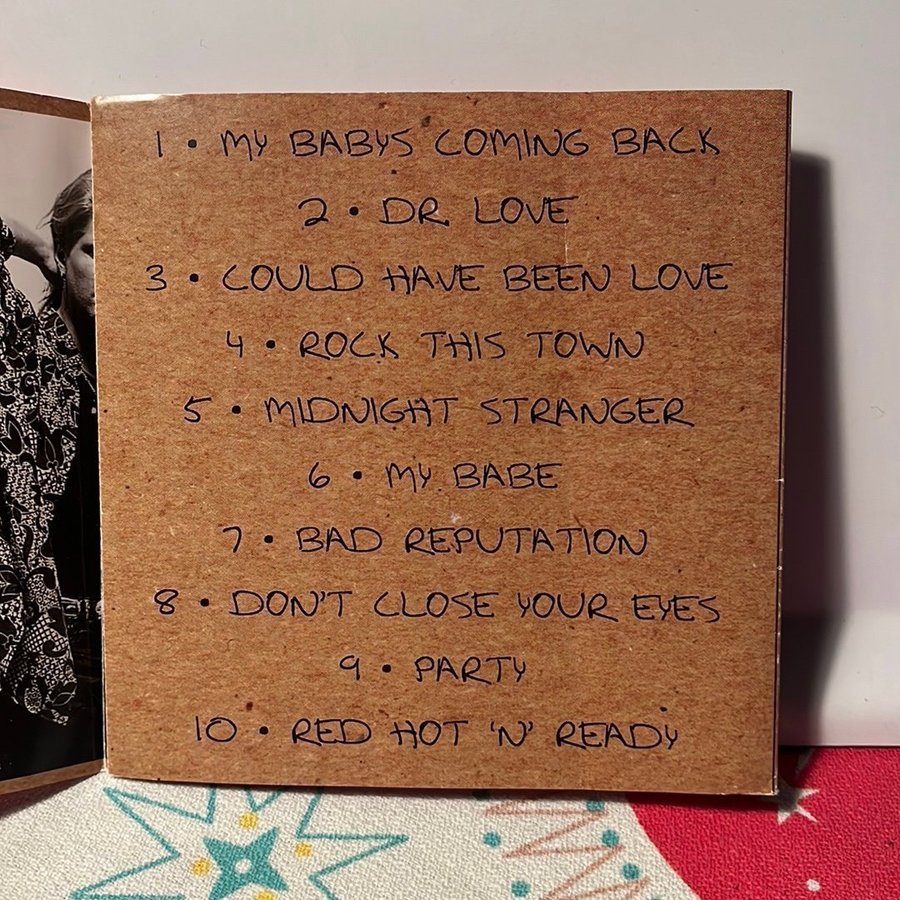 1 • MY BABYS COMING BACK
2 • DR. LOVE
3 • COULD HAVE BEEN LOVE
4 • ROCK THIS TOWN
5 • MIDNIGHT STRANGER
6 • MY BABE
7 • BAD REPUTATION
8 • DON'T CLOSE YOUR EYES
9 • PARTY
10 • RED HOT 'N' READY